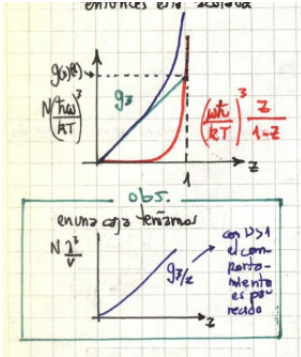 entonces era
g₃(1)
N(ħω/kT)³
g₃
(ωħ/kT)³ z/1-z
z
1
obs.
en una caja teníamos
N λ³/V
g3/2
z
con D>1
el com-
porta-
miento
es pa-
recido